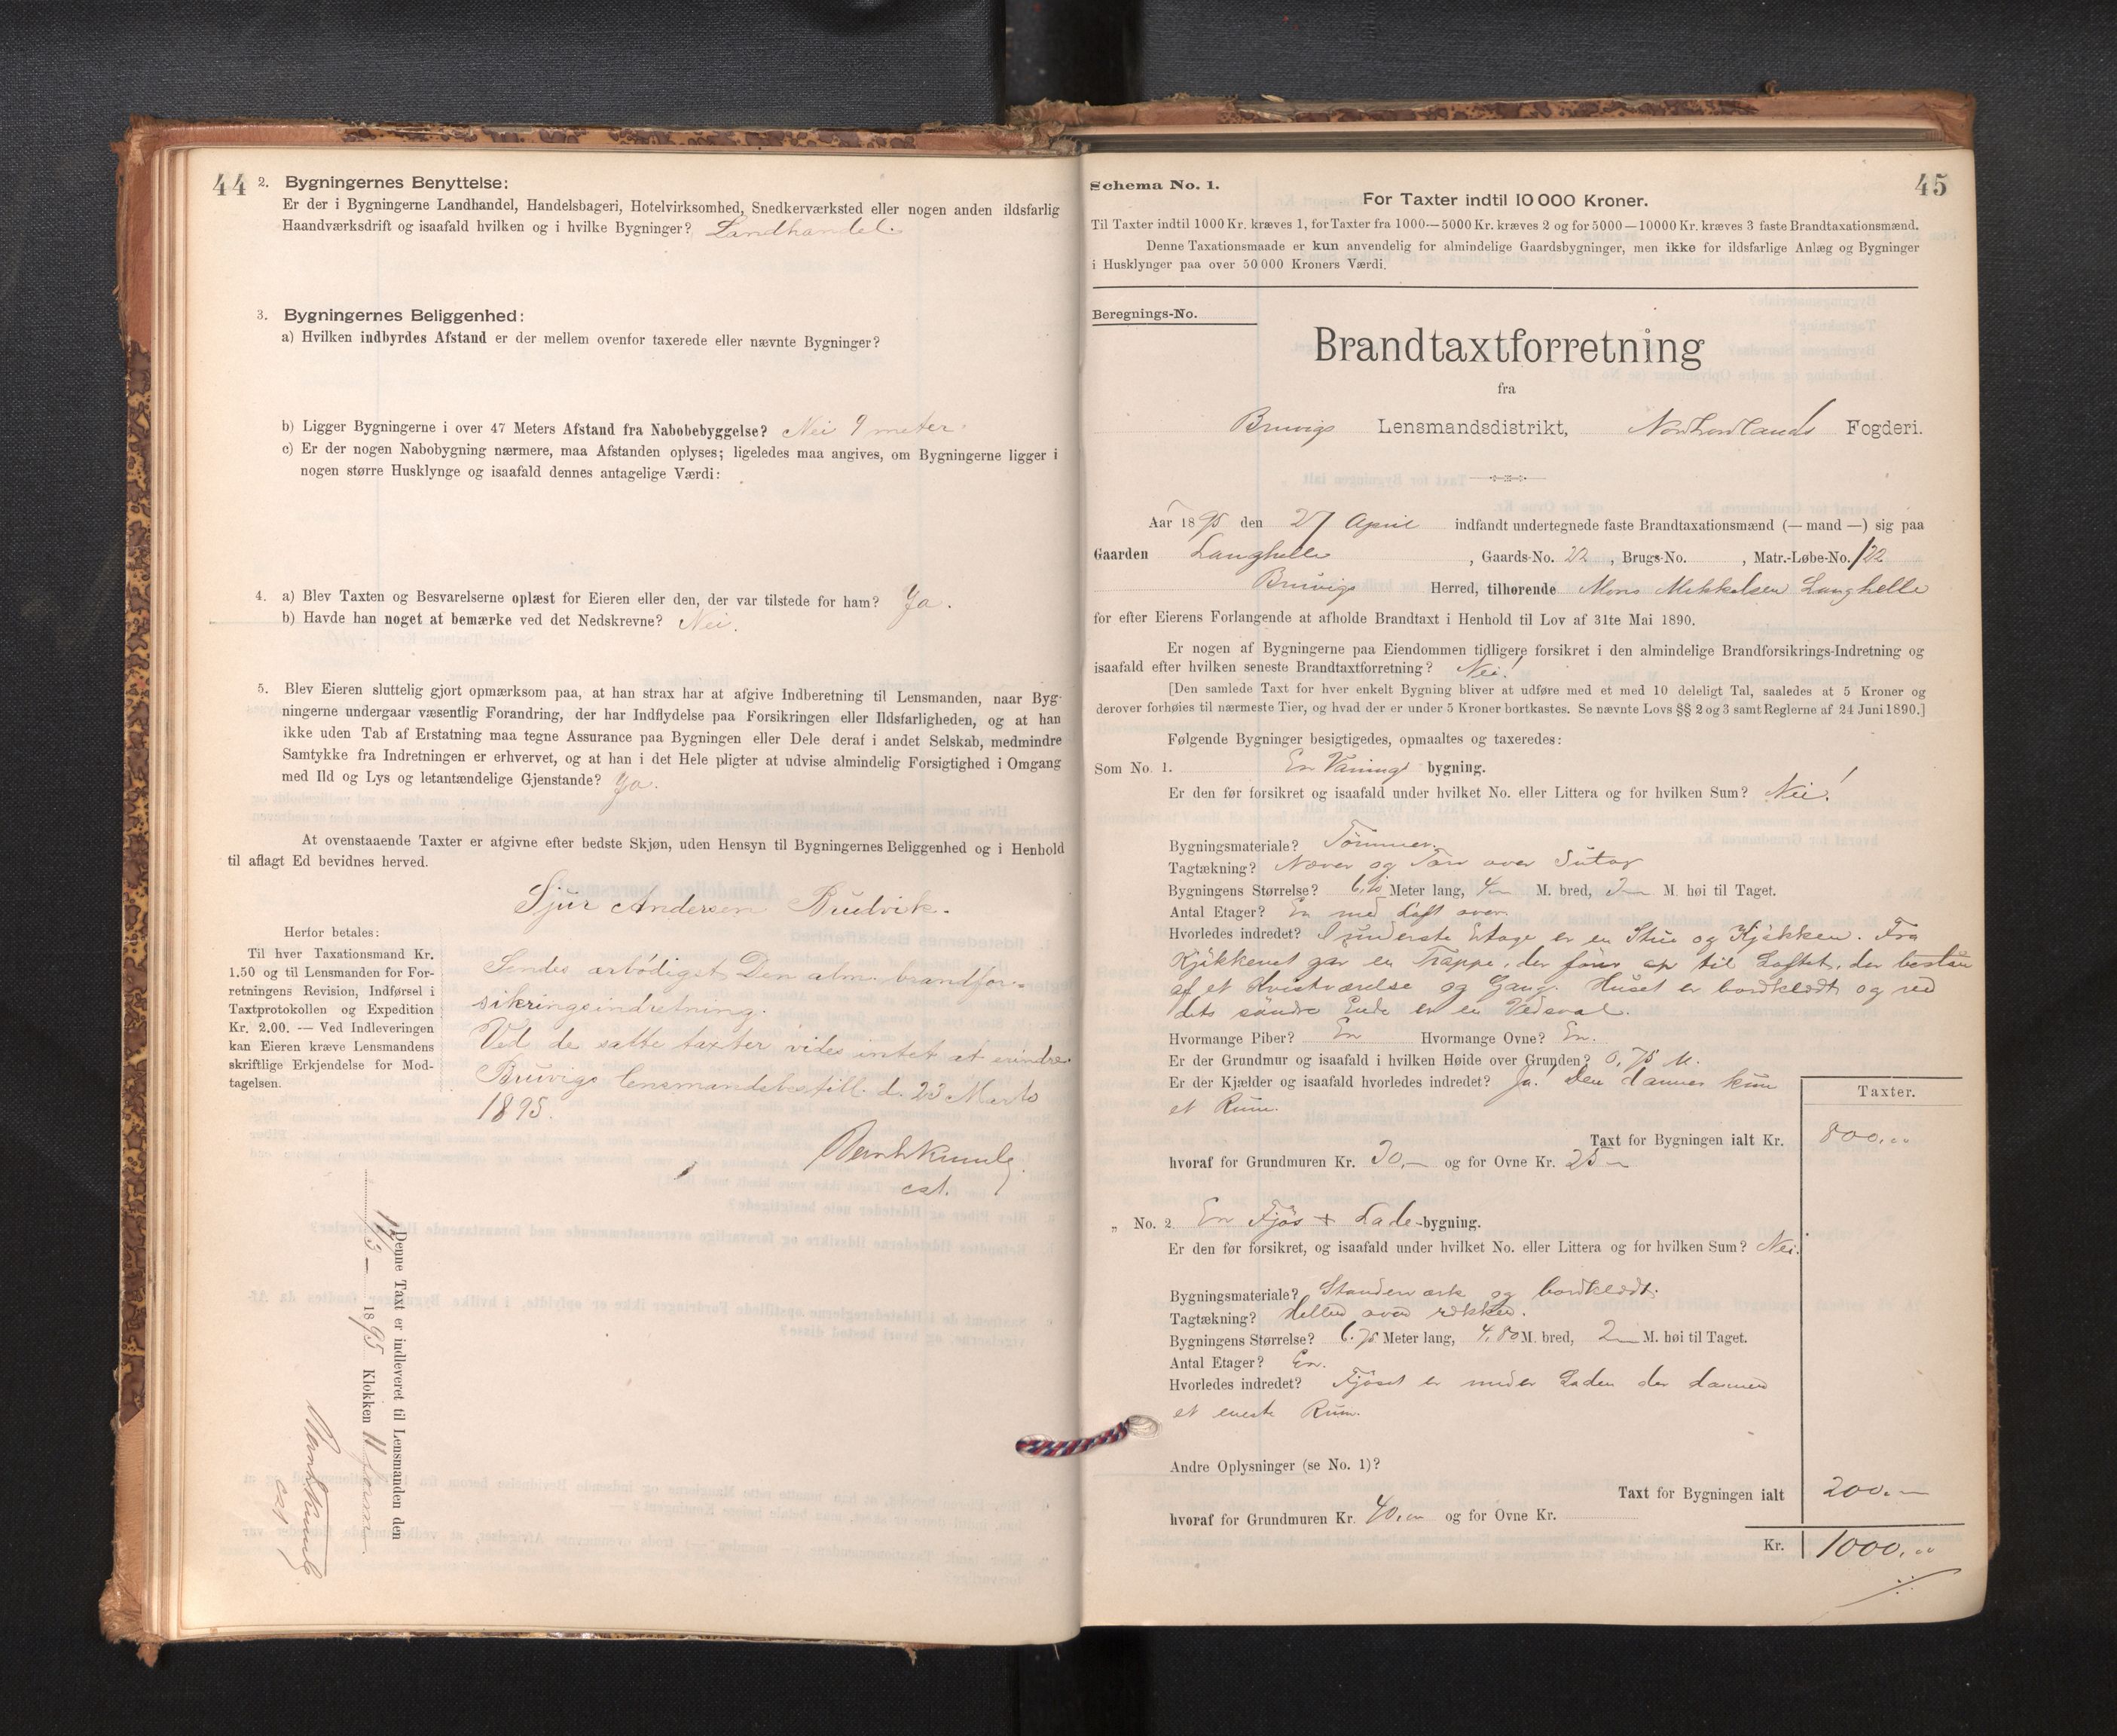 44
2. Bygningernes Benyttelse:
Er der i Bygningerne Landhandel, Handelsbageri, Hotelvirksomhed, Snedkerværksted eller nogen anden ildsfarlig
Haandværksdrift og isaafald hvilken og i hvilke Bygninger? Landhandel.
3. Bygningernes Beliggenhed:
a) Hvilken indbyrdes Afstand er der mellem ovenfor taxerede eller nævnte Bygninger?
b) Ligger Bygningerne i over 47 Meters Afstand fra Nabobebyggelse? Nei 9 meter.
c) Er der nogen Nabobygning nærmere, maa Afstanden oplyses; ligeledes maa angives, om Bygningerne ligger i
nogen større Husklynge og isaafald dennes antagelige Værdi:
4. a) Blev Taxten og Besvarelserne oplæst for Eieren eller den, der var tilstede for ham? Ja.
b) Havde han noget at bemærke ved det Nedskrevne? Nei.
5. Blev Eieren sluttelig gjort opmærksom paa, at han strax har at afgive Indberetning til Lensmanden, naar Byg-
ningerne undergaar væsentlig Forandring, der har Indflydelse paa Forsikringen eller Ildsfarligheden, og at han
ikke uden Tab af Erstatning maa tegne Assurance paa Bygningen eller Dele deraf i andet Selskab, medmindre
Samtykke fra Indretningen er erhvervet, og at han i det Hele pligter at udvise almindelig Forsigtighed i Omgang
med Ild og Lys og letantændelige Gjenstande? Ja.
At ovenstaaende Taxter er afgivne efter bedste Skjøn, uden Hensyn til Bygningernes Beliggenhed og i Henhold
til aflagt Ed bevidnes herved.
Sjur Andersen Bruvik.
Herfor betales:
Til hver Taxationsmand Kr.
1.50 og til Lensmanden for For-
retningens Revision, Indførsel i
Taxtprotokollen og Expedition
Kr. 2.00. — Ved Indleveringen
kan Eieren kræve Lensmandens
skriftlige Erkjendelse for Mod-
tagelsen.
Sendes ærbødigst Den alm. brandfor-
sikringsindretning.
Ved de satte taxter vides intet at erindre.
Bruvigs lensmandsbestill. d. 23 Marts
1895.
cst.
Denne Taxt er indleveret til Lensmanden den
/3 — 1895 Klokken 11 form.
cst
45
Schema No. 1.
For Taxter indtil 10 000 Kroner.
Til Taxter indtil 1000 Kr. kræves 1, for Taxter fra 1000—5000 Kr. kræves 2 og for 5000—10000 Kr. kræves 3 faste Brandtaxationsmænd.
Denne Taxationsmaade er kun anvendelig for almindelige Gaardsbygninger, men ikke for ildsfarlige Anlæg og Bygninger
i Husklynger paa over 50 000 Kroners Værdi.
Beregnings-No.
Brandtaxtforretning
fra
Bruvigs Lensmandsdistrikt, Nordhordlands Fogderi.
Aar 1895 den 27 April indfandt undertegnede faste Brandtaxationsmænd (— mand —) sig paa
Gaarden Langhelle, Gaards-No. 22, Brugs-No. , Matr.-Løbe-No. /22
Bruvigs Herred, tilhørende Mons Mikkelsen Langhelle
for efter Eierens Forlangende at afholde Brandtaxt i Henhold til Lov af 31te Mai 1890.
Er nogen af Bygningerne paa Eiendommen tidligere forsikret i den almindelige Brandforsikrings-Indretning og
isaafald efter hvilken seneste Brandtaxtforretning? Nei!
[Den samlede Taxt for hver enkelt Bygning bliver at udføre med et med 10 deleligt Tal, saaledes at 5 Kroner og
derover forhøies til nærmeste Tier, og hvad der er under 5 Kroner bortkastes. Se nævnte Lovs §§ 2 og 3 samt Reglerne af 24 Juni 1890.]
Følgende Bygninger besigtigedes, opmaaltes og taxeredes:
Som No. 1. En Vånings bygning.
Er den før forsikret og isaafald under hvilket No. eller Littera og for hvilken Sum? Nei!
Bygningsmateriale? Tömmer.
Tagtækning? Næver og Torv over Sutag
Bygningens Størrelse? Meter lang, 4 M. bred, M. høi til Taget.
Antal Etager? En med Loft over
Hvorledes indredet? I underste Etage er en Stue og Kjøkken. Fra
Kjøkkenet gar en Trappe, der fører op til Loftet, der består
af et Kvistværelse og Gang. Huset er bordklædt og ved
dets söndre Ende er en Vedsval.
Hvormange Piber? En Hvormange Ovne? En.
Er der Grundmur og isaafald i hvilken Høide over Grunden? 0,75 M.
Er der Kjælder og isaafald hvorledes indredet? Ja! Den danner kun
et Rum.
Taxter.
Taxt for Bygningen ialt Kr. 800,00
hvoraf for Grundmuren Kr. 30,— og for Ovne Kr. 25 —
„ No. 2 En Fjøs + Lade-bygning.
Er den før forsikret, og isaafald under hvilket No. eller Littera og for hvilken Sum? Nei.
Bygningsmateriale? Standerværk og bordklædt.
Tagtækning? Heller over rækker.
Bygningens Størrelse? 6.75 Meter lang, 4,80 M. bred, 2 — M. høi til Taget.
Antal Etager? En.
Hvorledes indredet? Fjöset er under Laden der danner
et eneste Rum.
Andre Oplysninger (se No. 1)?
Taxt for Bygningen ialt 200.—
hvoraf for Grundmuren Kr. 40,00 og for Ovne Kr.
Kr. 1000,00